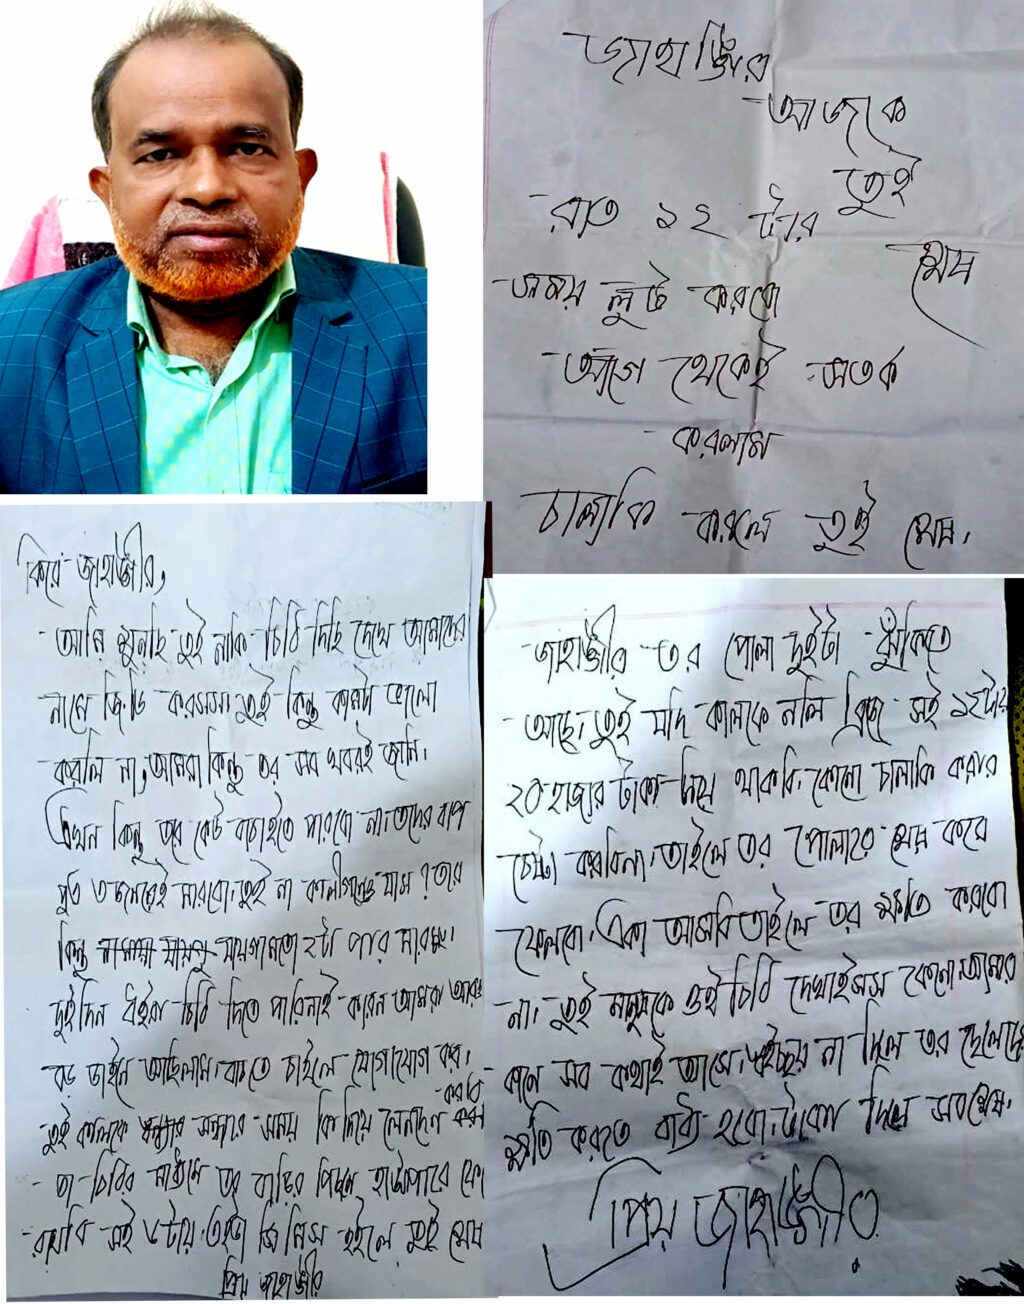 জাহাঙ্গীর
আজকে
তুই
রাত ১২ টার
শেষ
সময় লুট করবো
আগে থেকেই সতর্ক
করলাম
চালাকি করলে তুই শেষ।
কিরে জাহাঙ্গীর,
আমি শুনছি তুই নাকি চিঠি দিছি দেখে আমাদের
নামে জিডি করসস। তুই কিন্তু কামটা ভালো
করলি না, আমরা কিন্তু তর সব খবরই জানি।
এখন কিন্তু তরে কেউ বাচাইতে পারবো না। তদের বাপ
পুত ৩ জনেরেই মারবো। তুই না কালীগঞ্জ যাস ? তরে
কিন্তু পারে মারমু।
দুইদিন ধইরা চিঠি দিতে পারিনাই কারন আমরা আরও
বড় ডাইনে আছিলাম। বাচতে চাইলে যোগাযোগ কর।
তুই কালকে সন্ধার সময় কি দিয়ে লেনদেন করবি
তা চিঠির মাধ্যমে তর বাড়ির পিছনে
রাখবি সই ৬টায়। জিনিস হইলে তুই শেষ
প্রিয় জাহাঙ্গীর
জাহাঙ্গীর তর পোলা দুইটা ঝুঁকিতে
আছে। তুই যদি কালকে নলি ব্রিজে সই ১২টায়
২০ হাজার টাকা নিয়ে থাকবি। কোনো চালাকি করার
চেষ্টা করবিনা। তাইলে তর পোলারে শেষ করে
ফেলবো। একা আসবি তাইলে তর ক্ষতি করবো
না। তুই মানুষকে ওই চিঠি দেখাইসস কেনো। আমার
কানে সব কথাই আসে। না দিলে তর ছেলেদের
ক্ষতি করতে বাধ্য হবো। টাকা দিলে সব শেষ।
প্রিয় জাহাঙ্গীর